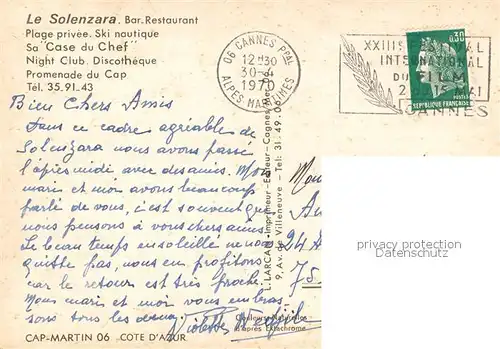 Le Solenzara. Bar. Restaurant
Plage privée. Ski nautique
Sa "Case du Chef"
Night Club. Discothéque
Promenade du Cap
Tél. 35.91.43
06 CANNES PPAL
12H30
30-4
1970
ALPES MARITIMES
XXIIIE FESTIVAL
INTERNATIONAL
DU FILM
2 15 MAI
CANNES
0,30
POSTES
REPUBLIQUE FRANÇAISE
Bien Chers Amis
Dans ce cadre agréable de
Solenzara nous avons passé
l'après midi avec des amis. Mon
mari et moi avons beaucoup
parlé de vous, c'est souvent que
nous pensons à vous chers amis.
Le beau temps ensoleillé ne nous
quitte pas, nous en profitons
car le retour est très proche.
Mon mari et moi vous embras
sons tous les deux.
Violette
L. LARCAN - Imprimeur - Editeur - Cagnes
9, Av. de Villeneuve - Tél: 31.49.06
94 A
75
privacy protection
Datenschutz
Couleurs Naturelles
d'après Ektachrome
CAP-MARTIN 06 COTE D'AZUR